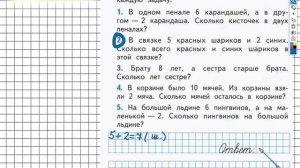 каждую задачу.
1. В одном пенале 6 карандашей, а в дру-
гом — 2 карандаша. Сколько кисточек в двух
пеналах?
2. В связке 5 красных шариков и 2 синих.
Сколько всего красных и синих шариков в
этой связке?
3. Брату 8 лет, а сестра старше брата.
Сколько лет сестре?
4. В корзине было 10 мячей. Из корзины взя-
ли 2 мяча. Сколько мячей осталось в корзине?
5. На большой льдине 6 пингвинов, а на ма-
ленькой — 2. Сколько пингвинов на большой
льдине?
5+2=7(ш.)
Ответ